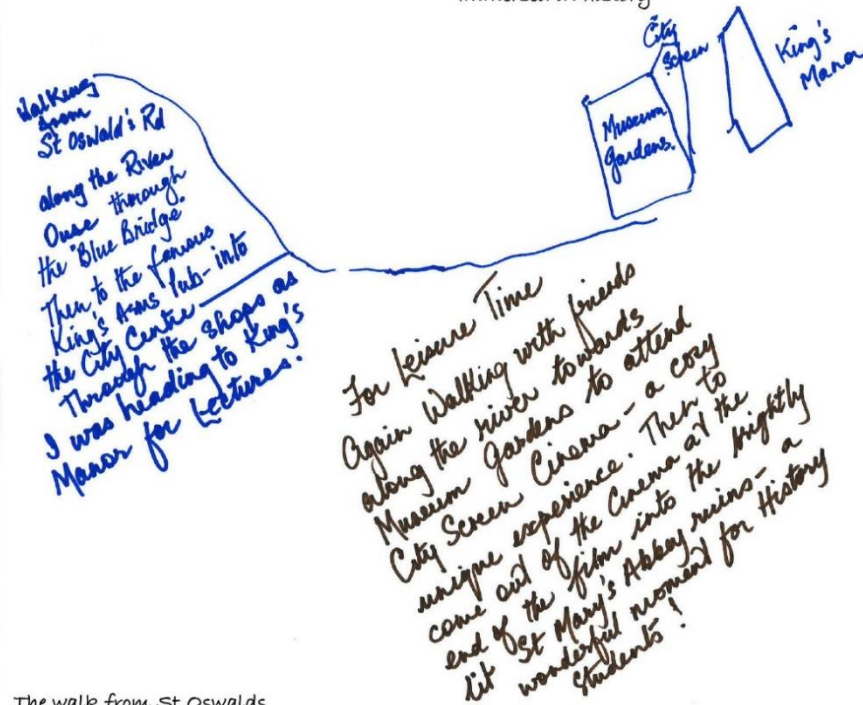 immersed in history
City
Screen
King's
Mano
Museum
Gardens.
Walking
from
St Oswald's Rd
along the River
Ouse through
the "Blue Bridge."
Then to the famous
King's Arms Pub- into
the City Centre
Through the shops as
I was heading to King's
Manor for Lectures.
For Leisure Time
Again Walking with friends
along the river towards
Museum Gardens to attend
City Screen Cinema - a cozy
unique experience. Then to
come out of the Cinema at the
end of the film into the brightly
lit St Mary's Abbey ruins - a
wonderful moment for History
Students!
The walk from St Oswalds